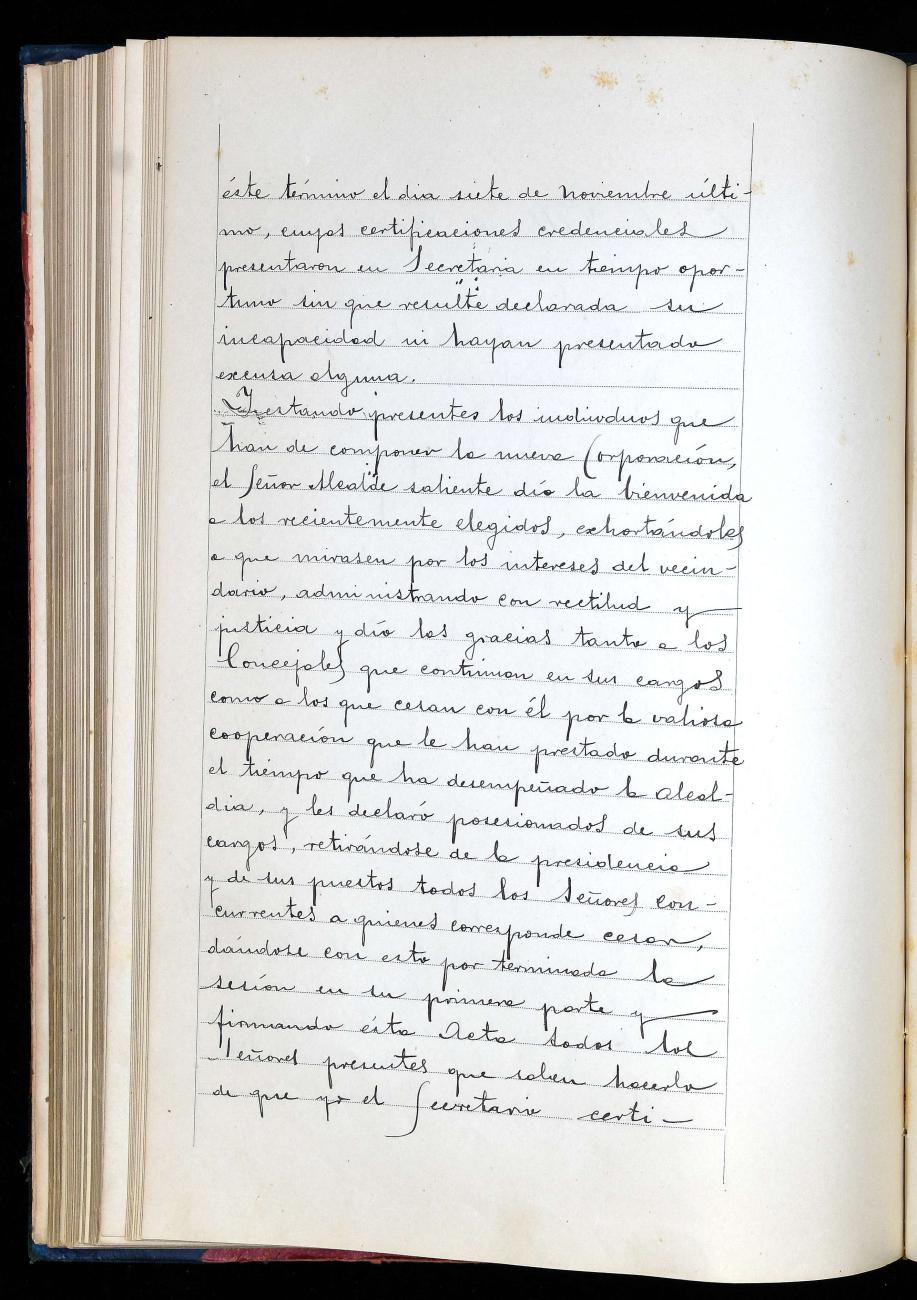 éste término el dia siete de Noviembre últi-
mo, cuyas certificaciones credenciales
presentaron en Secretaria en tiempo opor-
tuno sin que resulte declarada su
incapacidad ni hayan presentado
excusa alguna.
Y estando presentes los individuos que
han de componer la nueva Corporación,
el Señor Alcalde saliente dío la bienvenida
a los recientemente elegidos, exhortándoles
a que mirasen por los intereses del vecin-
dario, administrando con rectitud y
justicia y dío las gracias tanto a los
Concejales que continuan en sus cargos
como a los que cesan con él por la valiosa
cooperación que le han prestado durante
el tiempo que ha desempeñado la Alcal-
dia, y les declaró posesionados de sus
cargos, retirándose de la presidencia
y de sus puestos todos los Señores con-
currentes a quienes corresponde cesar,
dándose con esto por terminada la
sesión en su primera parte y
firmando ésta Acta todos los
Señores presentes que saben hacerlo
de que yo el Secretario certi-